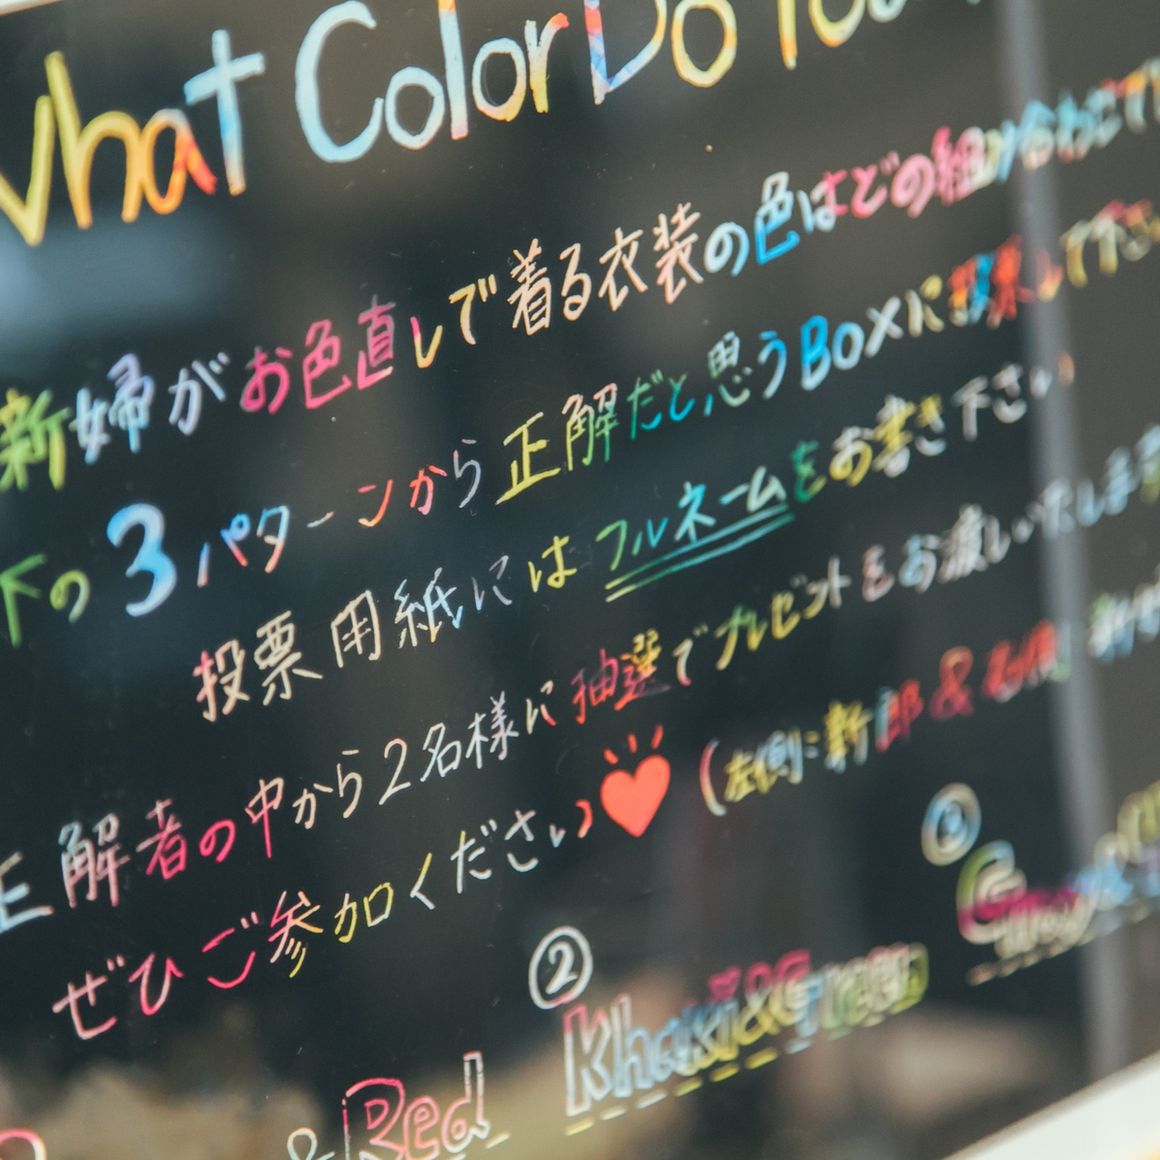 What Color Do You
新婦がお色直しで着る衣装の色はどの組み合わせで
下の3パターンから正解だと思うBoxに投票して下さ
投票用紙にはフルネームをお書き下さい
正解者の中から2名様に抽選でプレゼントをお渡しいたします
ぜひご参加ください♥ (左側:新郎&右側:新婦
& Red
② Khaki&Green
③ Gray&